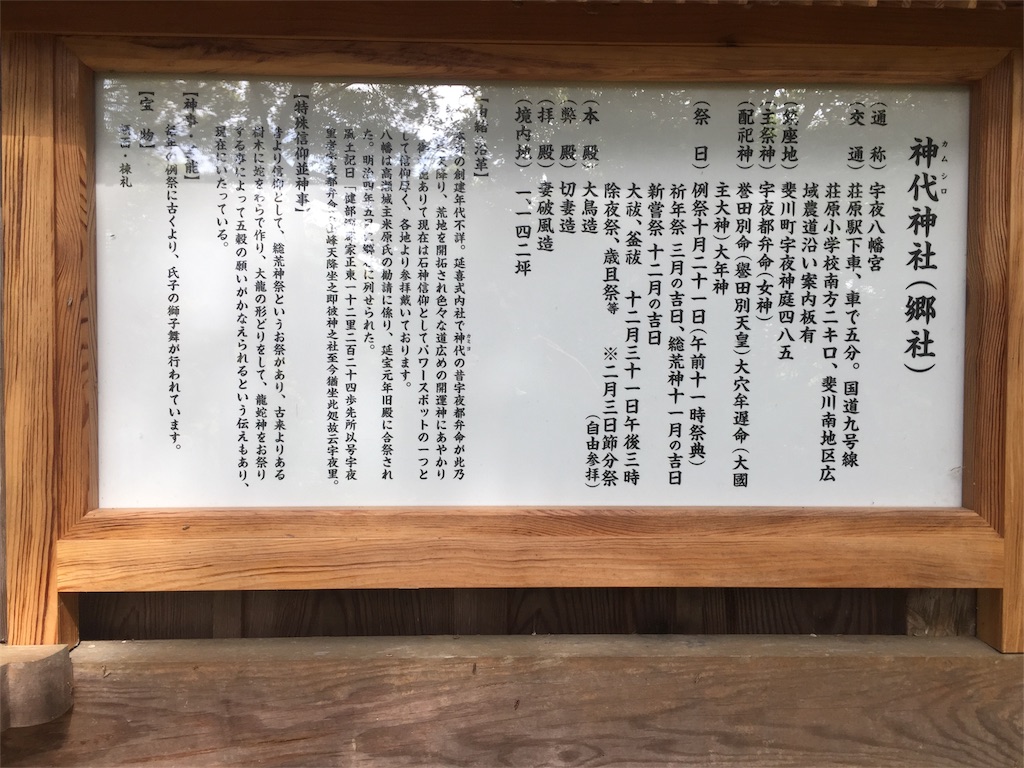 神代神社(郷社)
カムシロ
(通 称) 宇夜八幡宮
(交 通) 荘原駅下車、車で五分。国道九号線
荘原小学校南方二キロ、斐川南地区広
域農道沿い案内板有
座地) 斐川町宇夜神庭四八五
(主祭神) 宇夜都弁命(女神)
(配祀神) 誉田別命(譽田別天皇)大穴牟遅命(大國
主大神)大年神
(祭 日) 例祭十月二十一日(午前十一時祭典)
祈年祭 三月の吉日、総荒神十一月の吉日
新嘗祭 十二月の吉日
大祓、釜祓 十二月三十一日午後三時
除夜祭、歳旦祭等 ※二月三日節分祭
(自由参拝)
(本 殿) 大鳥造
(弊 殿) 切妻造
(拝 殿) 妻破風造
(境内地) 一、一四二坪
【由緒・沿革】
の創建年代不詳。延喜式内社で神代の昔宇夜都弁命が此乃
天降り、荒地を開拓され色々な道広めの開運神にあやかり
ありて現在は石神信仰としてパワースポットの一つと
して信仰厚く、各地より参拝戴いております。
八幡は高瀬城主米原氏の勧請に係り、延宝元年旧殿に合祭され
た。明治四年五に列せられた。
風土記曰「健部郷郡家正東一十二里二百二十四歩先所以号宇夜
里者宇夜都弁命山峰天降坐之即彼神之社至今猶坐此処故云宇夜里。
【特殊信仰並神事】
昔より信仰として、総荒神祭というお祭があり、古来よりある
樹木に蛇をわらで作り、大龍の形どりをして、龍蛇神をお祭り
する事によって五穀の願いがかなえられるという伝えもあり、
現在にいたっている。
【神事・芸能】
年の例祭に古くより、氏子の獅子舞が行われています。
【宝 物】
・棟札